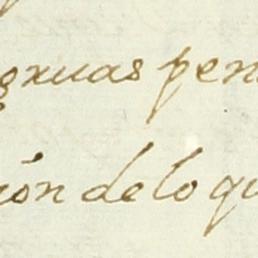 gxuas pen
ión de lo qu